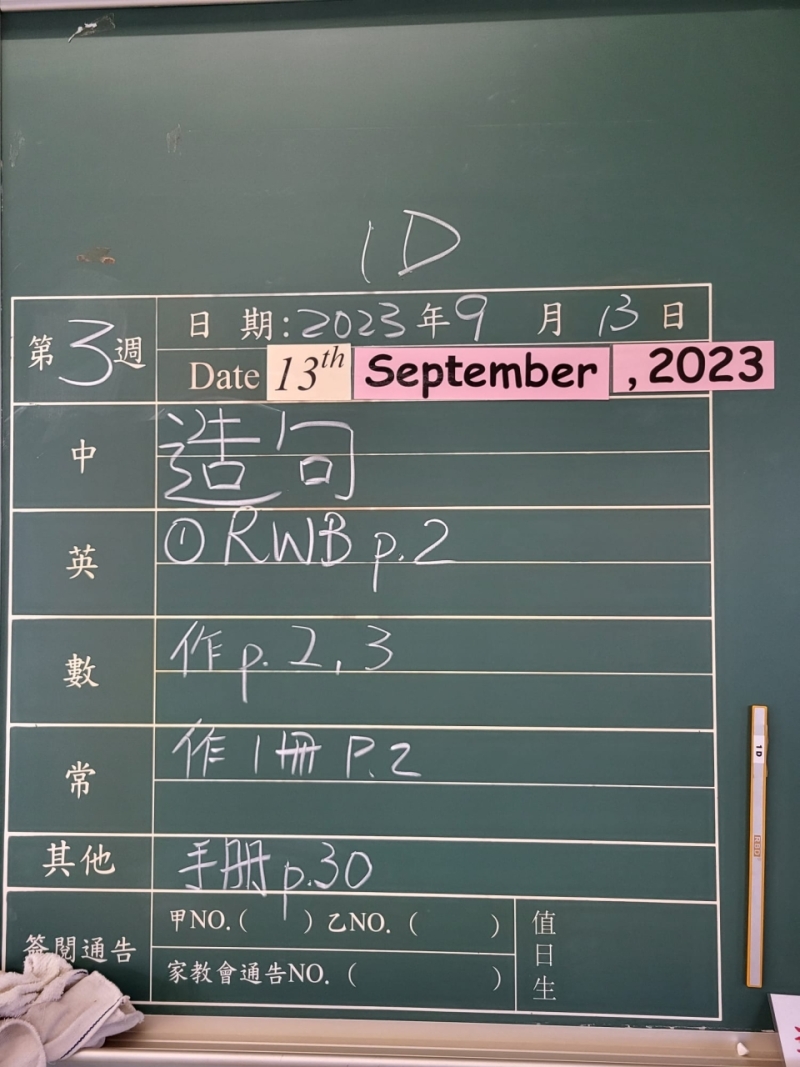 1D
第3週
日 期:2023年9 月 13 日
Date 13th September , 2023
中 造句
英 ① RWB p.2
數 作 p. 2, 3
常 作 1 冊 P.2
其他 手册 p.30
簽閱通告 甲NO.( ) 乙NO. ( )
家教會通告NO. ( )
值日生
1D